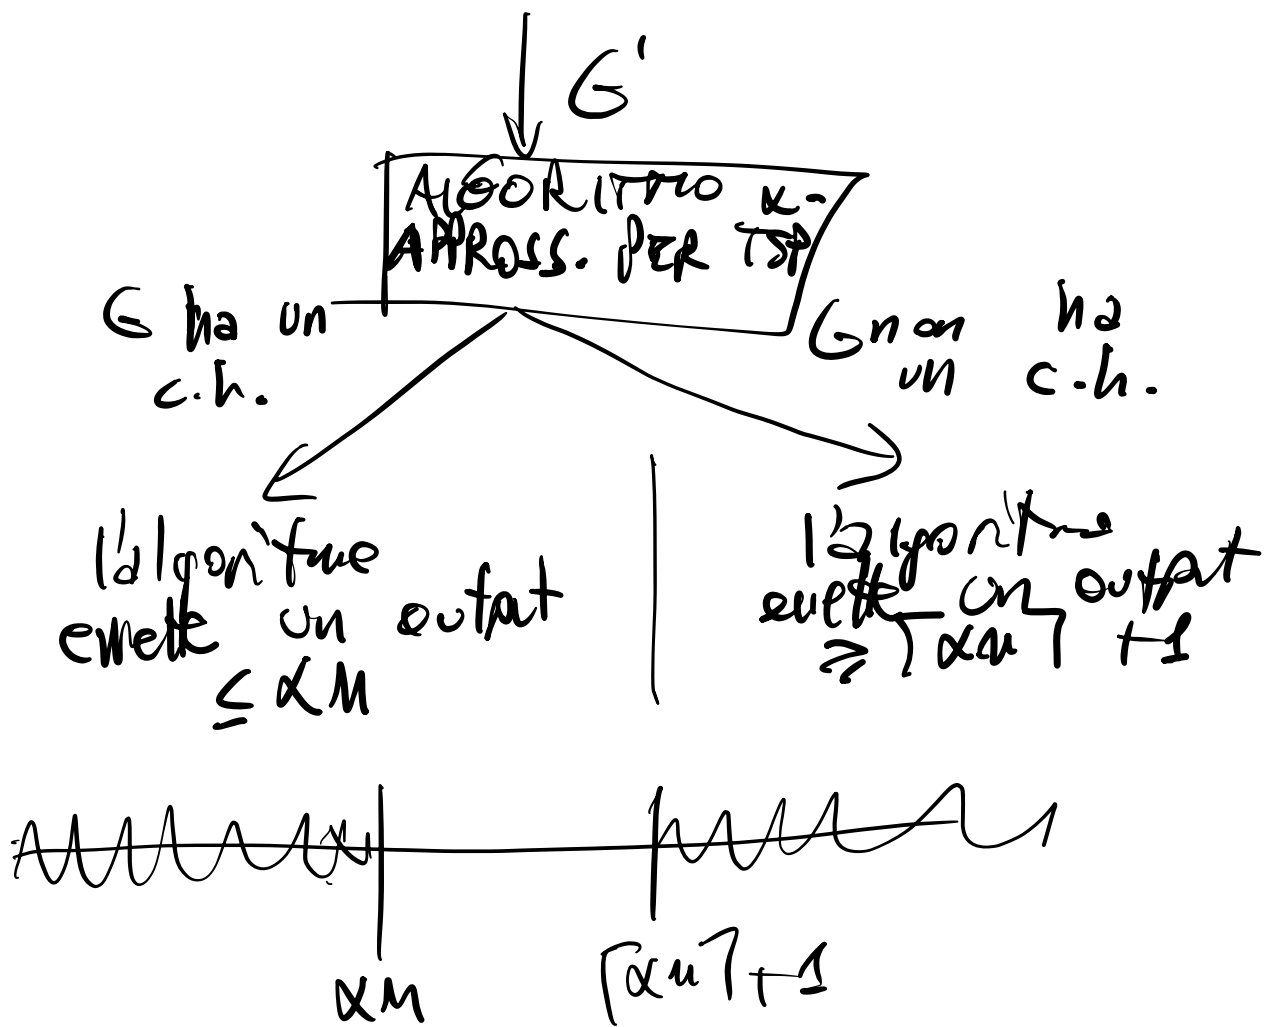 G'
ALGORITMO α-
APPROSS. PER TSP
G ha un
c.h.
G non ha
un c.h.
l'algoritmo
emette un output
≤ αn
l'algoritmo
emette un output
≥ ⌈αn⌉ +1
αn
⌈αn⌉+1